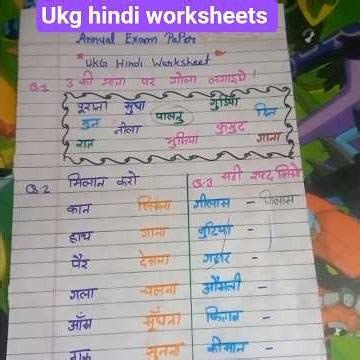 Ukg hindi worksheets
Annual Exam Paper
UKG Hindi Worksheet
Q.1 उ की मात्रा पर गोला लगाइये!
पुराना सुधा गुड़िया
जुन नीला पालतु कुमुद दिन
रात मुखिया गाना
Q.2 मिलान करो
कान
हाथ गाना
पैर देखना
गला चलना
आँख सूँघना
नाक सुनना
Q.3 सही शब्द लिखो
गीलास - गिलास
चुटिया -
गद्दार -
औसली -
किताब -
कीमान -